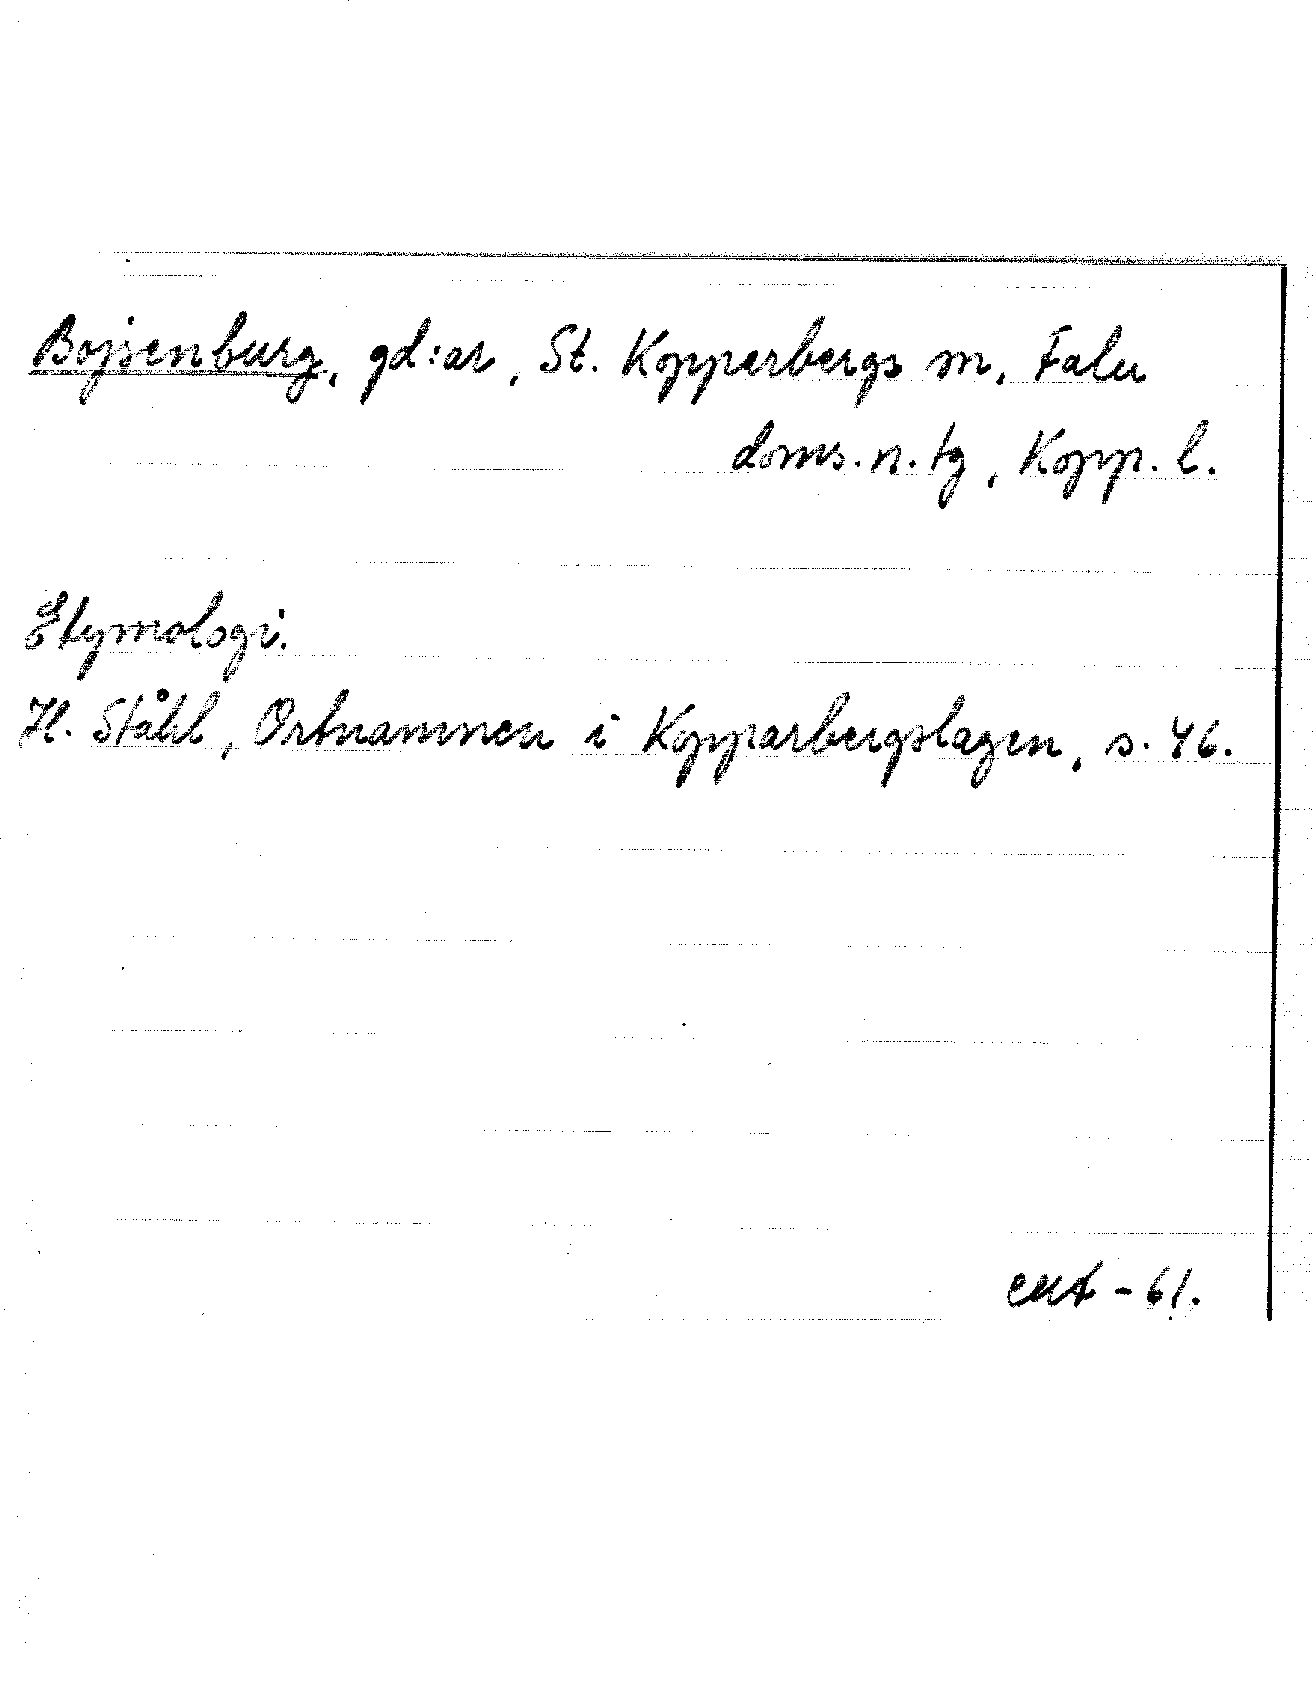 Bojsenburg, gd:ar, St. Kopparbergs sn, Falu
doms.n.tg, Kopp. l.
Etymologi.
H. Ståhl, Ortnamnen i Kopparbergslagen, s. 46.
-61.